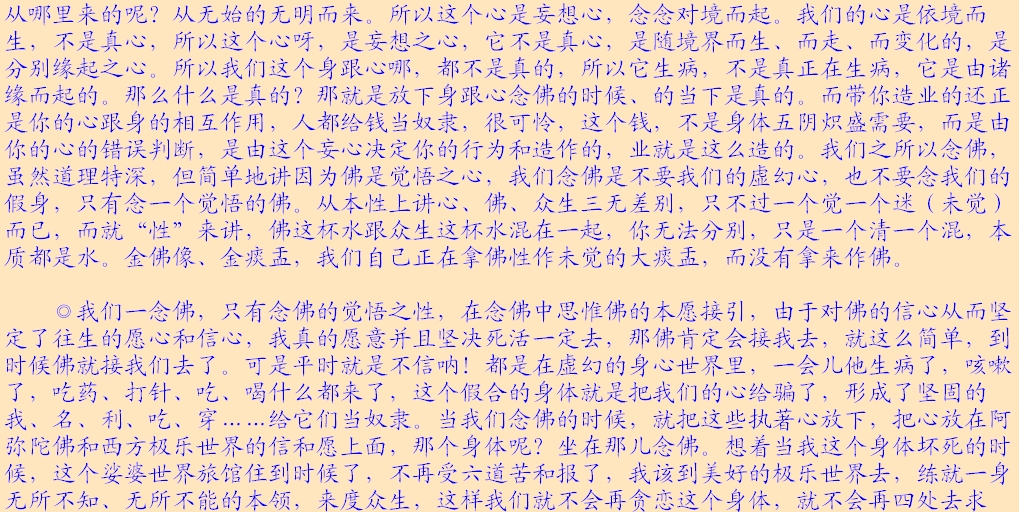 从哪里来的呢？从无始的无明而来。所以这个心是妄想心，念念对境而起。我们的心是依境而
生，不是真心，所以这个心呀，是妄想之心，它不是真心，是随境界而生、而走、而变化的，是
分别缘起之心。所以我们这个身跟心哪，都不是真的，所以它生病，不是真正在生病，它是由诸
缘而起的。那么什么是真的？那就是放下身跟心念佛的时候、的当下是真的。而带你造业的还正
是你的心跟身的相互作用，人都给钱当奴隶，很可怜，这个钱，不是身体五阴炽盛需要，而是由
你的心的错误判断，是由这个妄心决定你的行为和造作的，业就是这么造的。我们之所以念佛，
虽然道理特深，但简单地讲因为佛是觉悟之心，我们念佛是不要我们的虚幻心，也不要念我们的
假身，只有念一个觉悟的佛。从本性上讲心、佛、众生三无差别，只不过一个觉一个迷（未觉）
而已，而就“性”来讲，佛这杯水跟众生这杯水混在一起，你无法分别，只是一个清一个混，本
质都是水。金佛像、金痰盂，我们自己正在拿佛性作未觉的大痰盂，而没有拿来作佛。
◎我们一念佛，只有念佛的觉悟之性，在念佛中思惟佛的本愿接引，由于对佛的信心从而坚
定了往生的愿心和信心，我真的愿意并且坚决死活一定去，那佛肯定会接我去，就这么简单，到
时候佛就接我们去了。可是平时就是不信呐！都是在虚幻的身心世界里，一会儿他生病了，咳嗽
了，吃药、打针、吃、喝什么都来了，这个假合的身体就是把我们的心给骗了，形成了坚固的
我、名、利、吃、穿……给它们当奴隶。当我们念佛的时候，就把这些执著心放下，把心放在阿
弥陀佛和西方极乐世界的信和愿上面，那个身体呢？坐在那儿念佛。想着当我这个身体坏死的时
候，这个娑婆世界旅馆住到时候了，不再受六道苦和报了，我该到美好的极乐世界去，练就一身
无所不知、无所不能的本领，来度众生，这样我们就不会再贪恋这个身体，就不会再四处去求